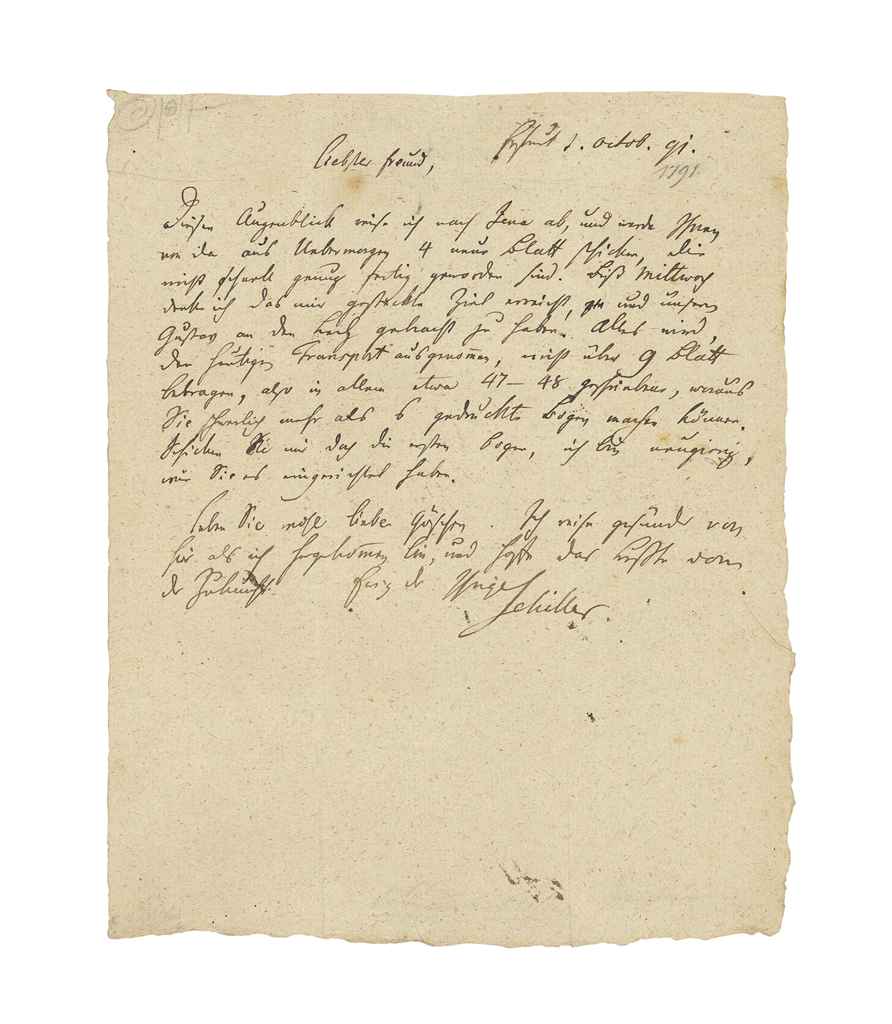 Erfurt 1. octob. 91.
1791
Liebster Freund,
Diesen Augenblick reise ich nach Jena ab, und werde Ihnen
von da aus Uebermorgen 4 neue Blatt schicken, die
nicht schnell genug fertig geworden sind. Biß Mittwoch
denke ich das mir gesteckte Ziel erreicht, und unsern
Gustav an den Lech gebracht zu haben. Alles wird,
den heutigen Transport ausgenommen, nicht über 9 Blatt
betragen, also in allem etwa 47 – 48 geschriebene, woraus
Sie schwerlich mehr als 6 gedruckte Bogen machen können.
Schicken Sie mir doch die ersten Bogen, ich bin neugierig,
wie Sie es eingerichtet haben.
Leben Sie wohl lieber Göschen. Ich reise gesünder von
hier als ich hergekommen bin, und hoffe das beßte von
der Zukunft. Ewig der Ihrige
Schiller.